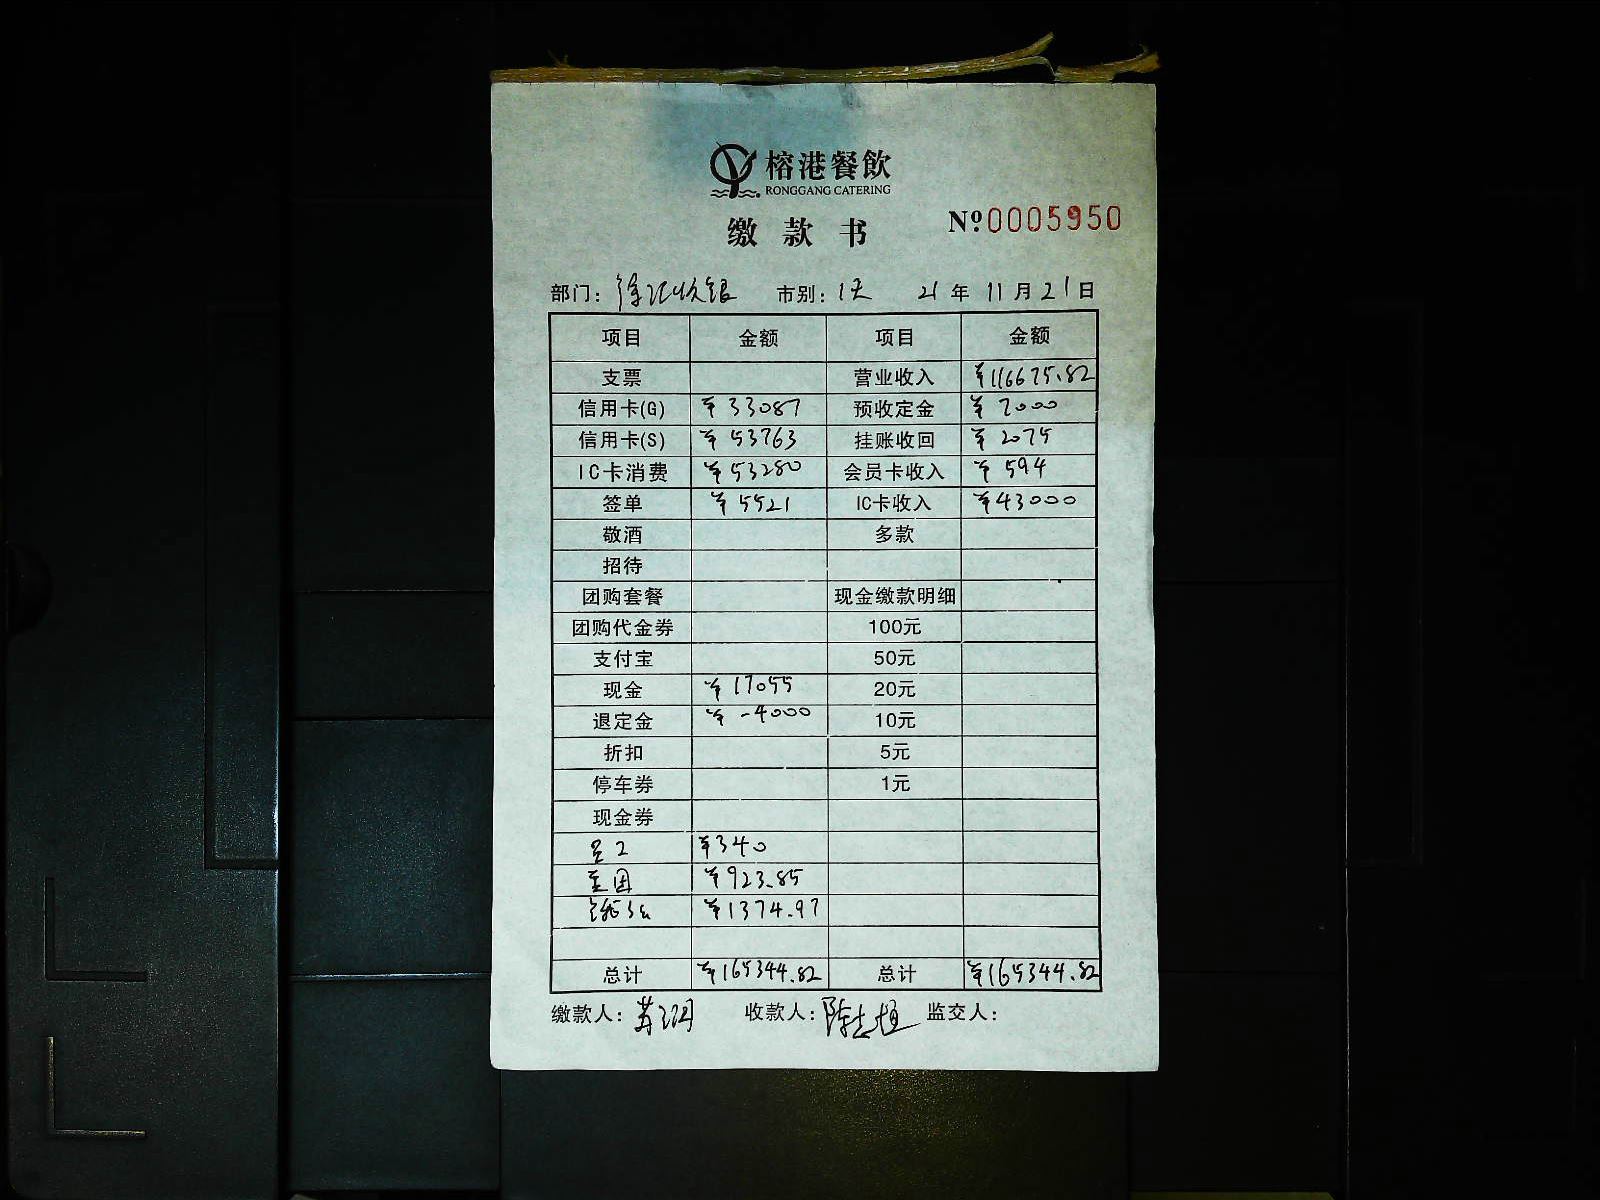 榕港餐飲
RONGGANG CATERING
缴款书
№0005950
部门: 徐汇收银 市别: 1天 21年11月21日
项目 金额 项目 金额
支票 营业收入 ¥116675.82
信用卡(G) ¥33087 预收定金
信用卡(S) ¥53763 挂账收回 ¥2075
IC卡消费 ¥53280 会员卡收入 ¥594
签单 ¥5521 IC卡收入 ¥43000
敬酒 多款
招待
团购套餐 现金缴款明细
团购代金券 100元
支付宝 50元
现金 ¥17055 20元
退定金 ¥-4000 10元
折扣 5元
停车券 1元
现金券
员工 ¥340
美团 ¥923.85
¥1374.97
总计 ¥165344.82 总计 ¥165344.82
缴款人: 收款人: 监交人: